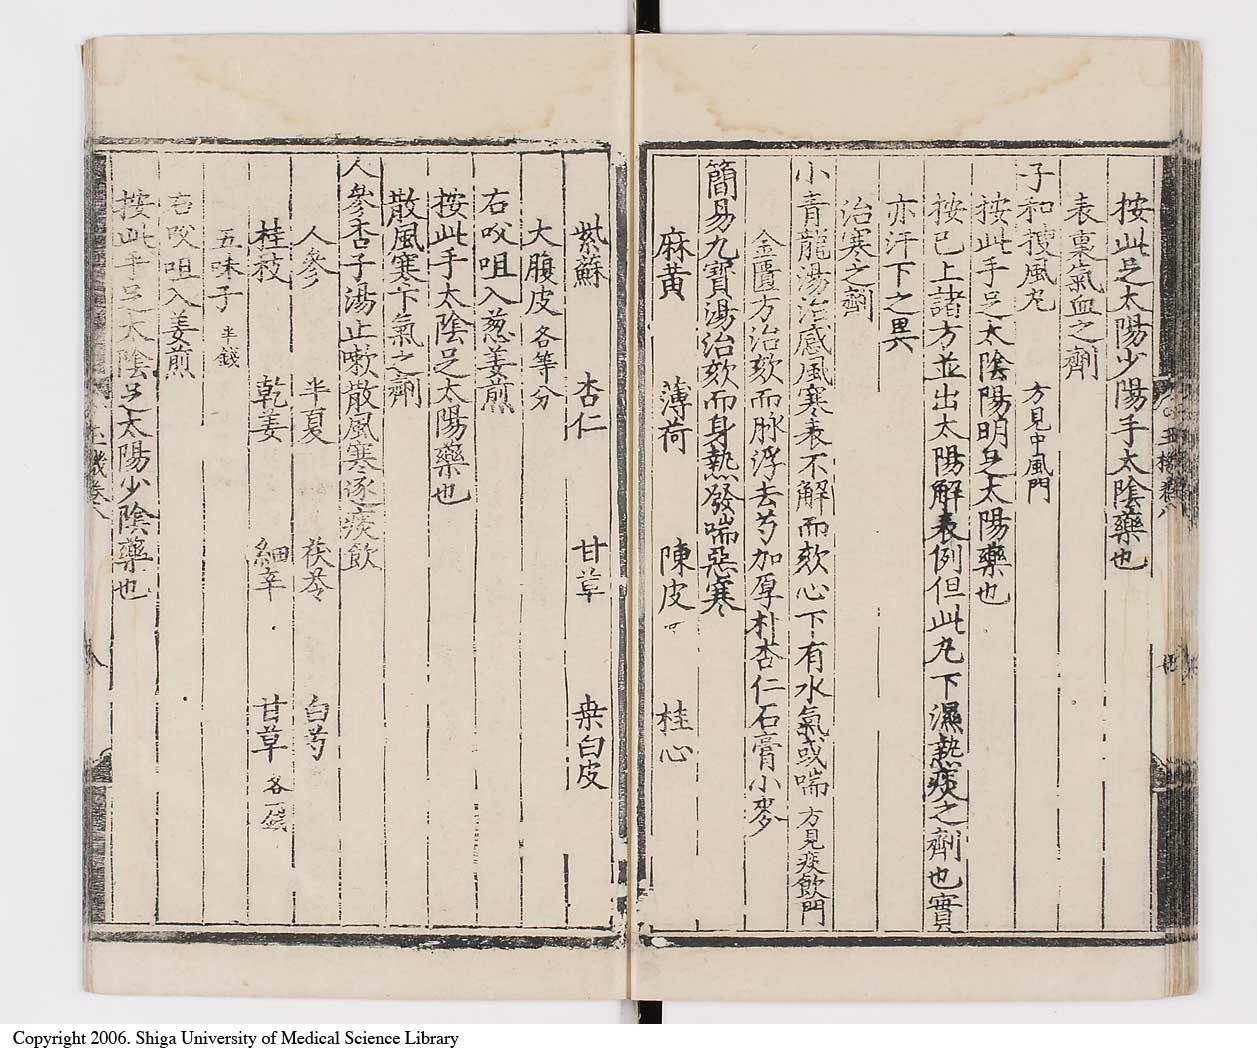 按此足太陽少陽手太陰藥也
表裏氣血之劑
子和搜風丸 方見中風門
按此手足太陰陽明足太陽藥也
按已上諸方並出太陽解表例但此丸下濕熱痰之劑也實
亦汗下之異
治寒之劑
小青龍湯治感風寒表不解而欬心下有水氣或喘 方見痰飲門
金匱方治欬而脉浮去芍加厚朴杏仁石膏小麥
簡易九寶湯治欬而身熱發喘惡寒
麻黄 薄荷 陳皮 桂心
紫蘇 杏仁 甘草 桒白皮
大腹皮 各等分
右㕮咀入葱姜煎
按此手太陰足太陽藥也
散風寒下氣之劑
人參杏子湯止嗽散風寒逐痰飲
人參 半夏 茯苓 白芍
桂枝 乾姜 細辛 甘草 各一錢
五味子 半錢
右㕮咀入姜煎
按此手足太陰足太陽少陰藥也
Copyright 2006. Shiga University of Medical Science Library